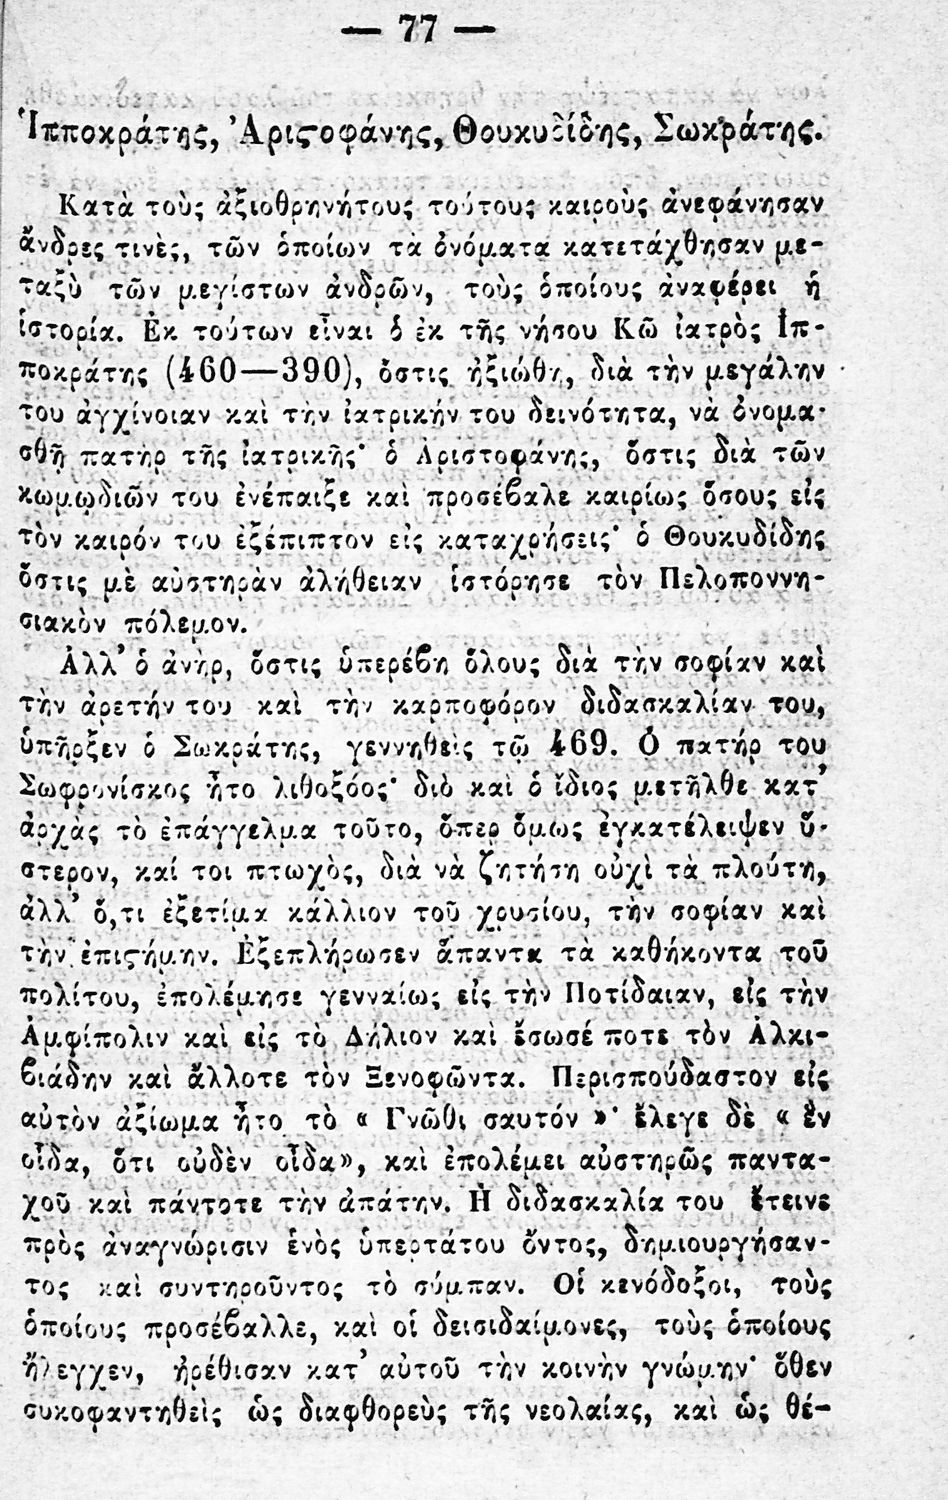 — 77 —
Ἱπποκράτης, Ἀριϛοφάνης, Θουκυδίδης, Σωκράτης.
Κατὰ τοὺς ἀξιοθρηνήτους τούτους καιροὺς ἀνεφάνησαν
ἄνδρες τινὲς, τῶν ὁποίων τὰ ὀνόματα κατετάχθησαν με-
ταξὺ τῶν μεγίστων ἀνδρῶν, τοὺς ὁποίους ἀναφέρει ἡ
ἱστορία. Ἐκ τούτων εἶναι ὁ ἐκ τῆς νήσου Κῶ ἰατρὸς Ἱπ-
ποκράτης (460—390), ὅστις ἠξιώθη, διὰ τὴν μεγάλην
του ἀγχίνοιαν καὶ τὴν ἰατρικήν του δεινότητα, νὰ ὀνομα-
σθῇ πατὴρ τῆς ἰατρικῆς· ὁ Ἀριστοφάνης, ὅστις διὰ τῶν
κωμῳδιῶν του ἐνέπαιξε καὶ προσέϐαλε καιρίως ὅσους εἰς
τὸν καιρόν του ἐξέπιπτον εἰς καταχρήσεις· ὁ Θουκυδίδης
ὅστις μὲ αὐστηρὰν ἀλήθειαν ἱστόρησε τὸν Πελοποννη-
σιακὸν πόλεμον.
Ἀλλ’ ὁ ἀνὴρ, ὅστις ὑπερέϐη ὅλους διὰ τὴν σοφίαν καὶ
τὴν ἀρετήν του καὶ τὴν καρποφόρον διδασκαλίαν του,
ὑπῆρξεν ὁ Σωκράτης, γεννηθεὶς τῷ 469. Ὁ πατήρ του
Σωφρονίσκος ἦτο λιθοξόος· διὸ καὶ ὁ ἴδιος μετῆλθε κατ’
ἀρχὰς τὸ ἐπάγγελμα τοῦτο, ὅπερ ὅμως ἐγκατέλειψεν ὕ-
στερον, καί τοι πτωχὸς, διὰ νὰ ζητήσῃ οὐχὶ τὰ πλούτη,
ἀλλ’ ὅ,τι ἐξετίμα κάλλιον τοῦ χρυσίου, τὴν σοφίαν καὶ
τὴν ἐπιϛήμην. Ἐξεπλήρωσεν ἅπαντα τὰ καθήκοντα τοῦ
πολίτου, ἐπολέμησε γενναίως εἰς τὴν Ποτίδαιαν, εἰς τὴν
Ἀμφίπολιν καὶ εἰς τὸ Δήλιον καὶ ἔσωσέ ποτε τὸν Ἀλκι-
ϐιάδην καὶ ἄλλοτε τὸν Ξενοφῶντα. Περισπούδαστον εἰς
αὐτὸν ἀξίωμα ἦτο τὸ « Γνῶθι σαυτόν »· ἔλεγε δὲ « ἓν
οἶδα, ὅτι οὐδὲν οἶδα», καὶ ἐπολέμει αὐστηρῶς παντα-
χοῦ καὶ πάντοτε τὴν ἀπάτην. Ἡ διδασκαλία του ἔτεινε
πρὸς ἀναγνώρισιν ἑνὸς ὑπερτάτου ὄντος, δημιουργήσαν-
τος καὶ συντηροῦντος τὸ σύμπαν. Οἱ κενόδοξοι, τοὺς
ὁποίους προσέϐαλλε, καὶ οἱ δεισιδαίμονες, τοὺς ὁποίους
ἤλεγχεν, ἠρέθισαν κατ’ αὐτοῦ τὴν κοινὴν γνώμην· ὅθεν
συκοφαντηθεὶς ὡς διαφθορεὺς τῆς νεολαίας, καὶ ὡς θέ-